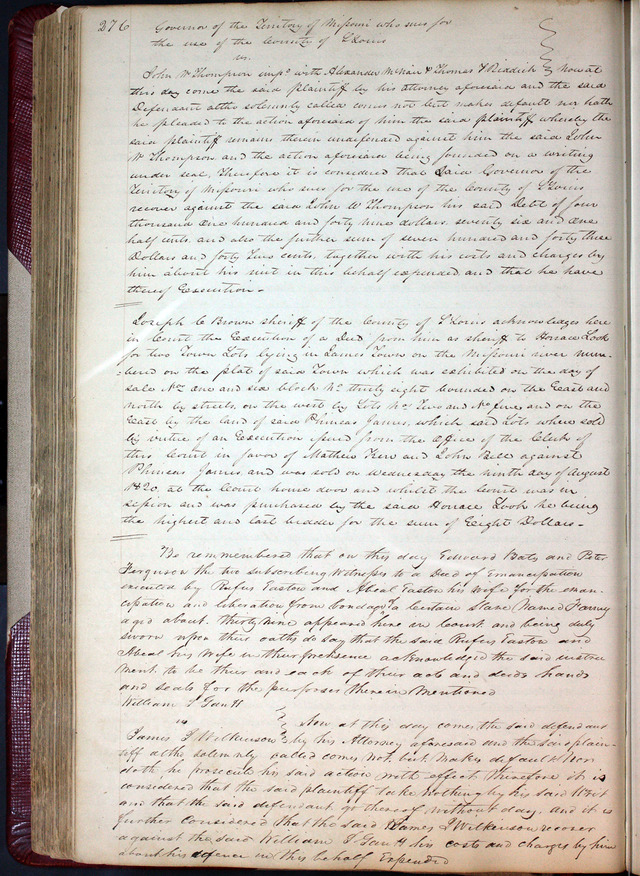 276 Governor of the Territory of Missouri who sues for
the use of the County of St Louis
vs.
John W Thompson impd with Alexander McNair & Thomas F Riddick } Now at
this day come the said plaintiff by his attorney aforesaid and the said
Defendant altho solemnly called comes not but makes default nor hath
he pleaded to the action aforesaid of him the said plaintiff whereby the
said plaintiff remains therein undefended against him the said John
W Thompson and the action aforesaid being founded on a writing
under seal, Therefore it is considered that Said Governor of the
Territory of Missouri who sues for the use of the County of St Louis
recover against the said John W Thompson his said Debt of four
thousand one hundred and forty nine dollars seventy six and one
half cents. and also the further sum of seven hundred and forty three
Dollars and forty two cents, together with his costs and charges by
him about his suit in this behalf expended and that he have
thereof Execution -
Joseph C Brown sheriff of the County of St Louis acknowledges here
in Court the Execution of a Deed from him as sheriff to Horrace Look
for two Town Lots lying in James Town on the Missouri river num
=bered on the plat of said Town which was exhibited on the day of
sale Nos. one and six block No. thirty eight bounded on the East and
north by streets, on the west by Lots Nos. Two and No five, and on the
East by the land of said Phineas James, which said Lots where sold
by virtue of an Execution issued from the office of the Clerk of
this Court in favor of Mathew Kerr and John Bell against
Phineas James and was sold on Wednesday the ninth day of August
1820. at the Court house door and whilst the Court was in
session and was purchased by the said Horrace Look he being
the highest and last bidder for the sum of Eight Dollars -
Be remmembered that on this day Edward Bats and Peter
Ferguson the two subscribing Witnesses to a Deed of Emancipation
executed by Rufus Easton and Abeal Easton his Wife for the eman-
cipation and liberation from bondage a Certain Slave Named Fanny
aged about Thirty Nine appeared here in Court and being duly
sworn upon their oaths do say that the said Rufus Easton and
Abeal his Wife in their preshsence acknowledged the said instru
ment to be their and each of their acts and deeds hands
and seals for the purposes therein Mentioned
William T Gantt
vs } Now at this day comes the said defendant
James L Wilkinson } by his Attorney aforesaid and the said plain-
tiff altho solemnly called comes not, but makes default Nor
doth he prosecute his said action with effect Therefore it is
considered that the said plaintiff take Nothing by his said Writ
and that the said defendant go thereof without day, and it is
further considered that the said James L Wilkinson recover
against the said William T Gantt his costs and charges by him
about his defence in this behalf Expended